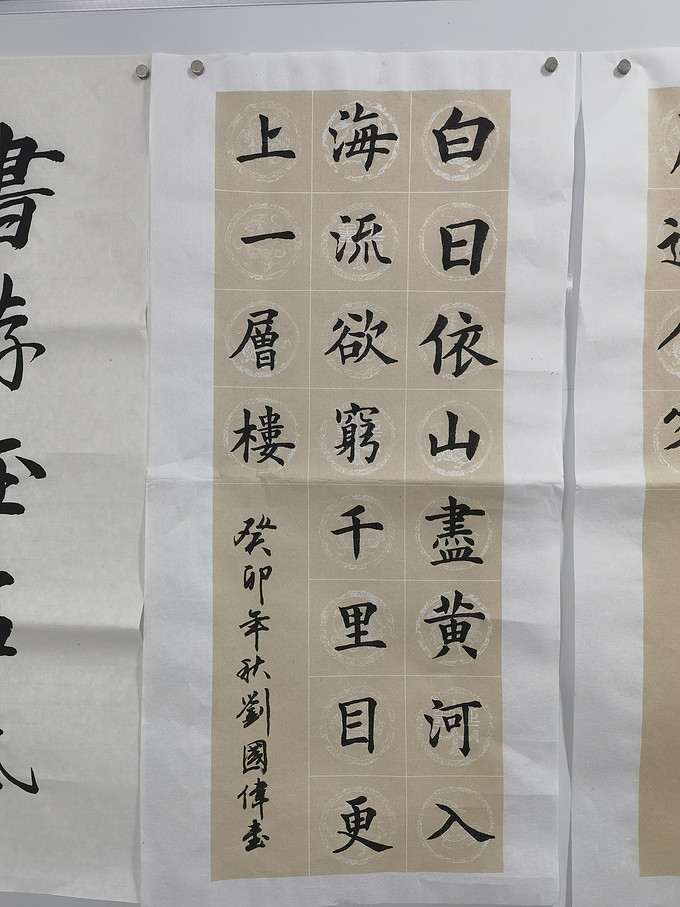 白日依山盡黃河入
海流欲窮千里目更
上一層樓
癸卯年秋劉國偉書
書存